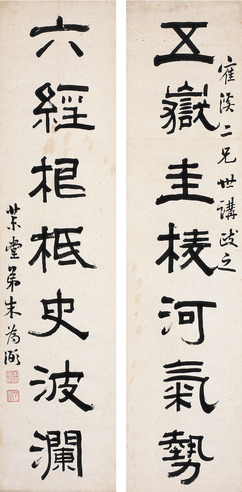 五嶽圭棱河氣勢
寉溪二兄世講政之
六經根柢史波瀾
茮堂弟朱為弼